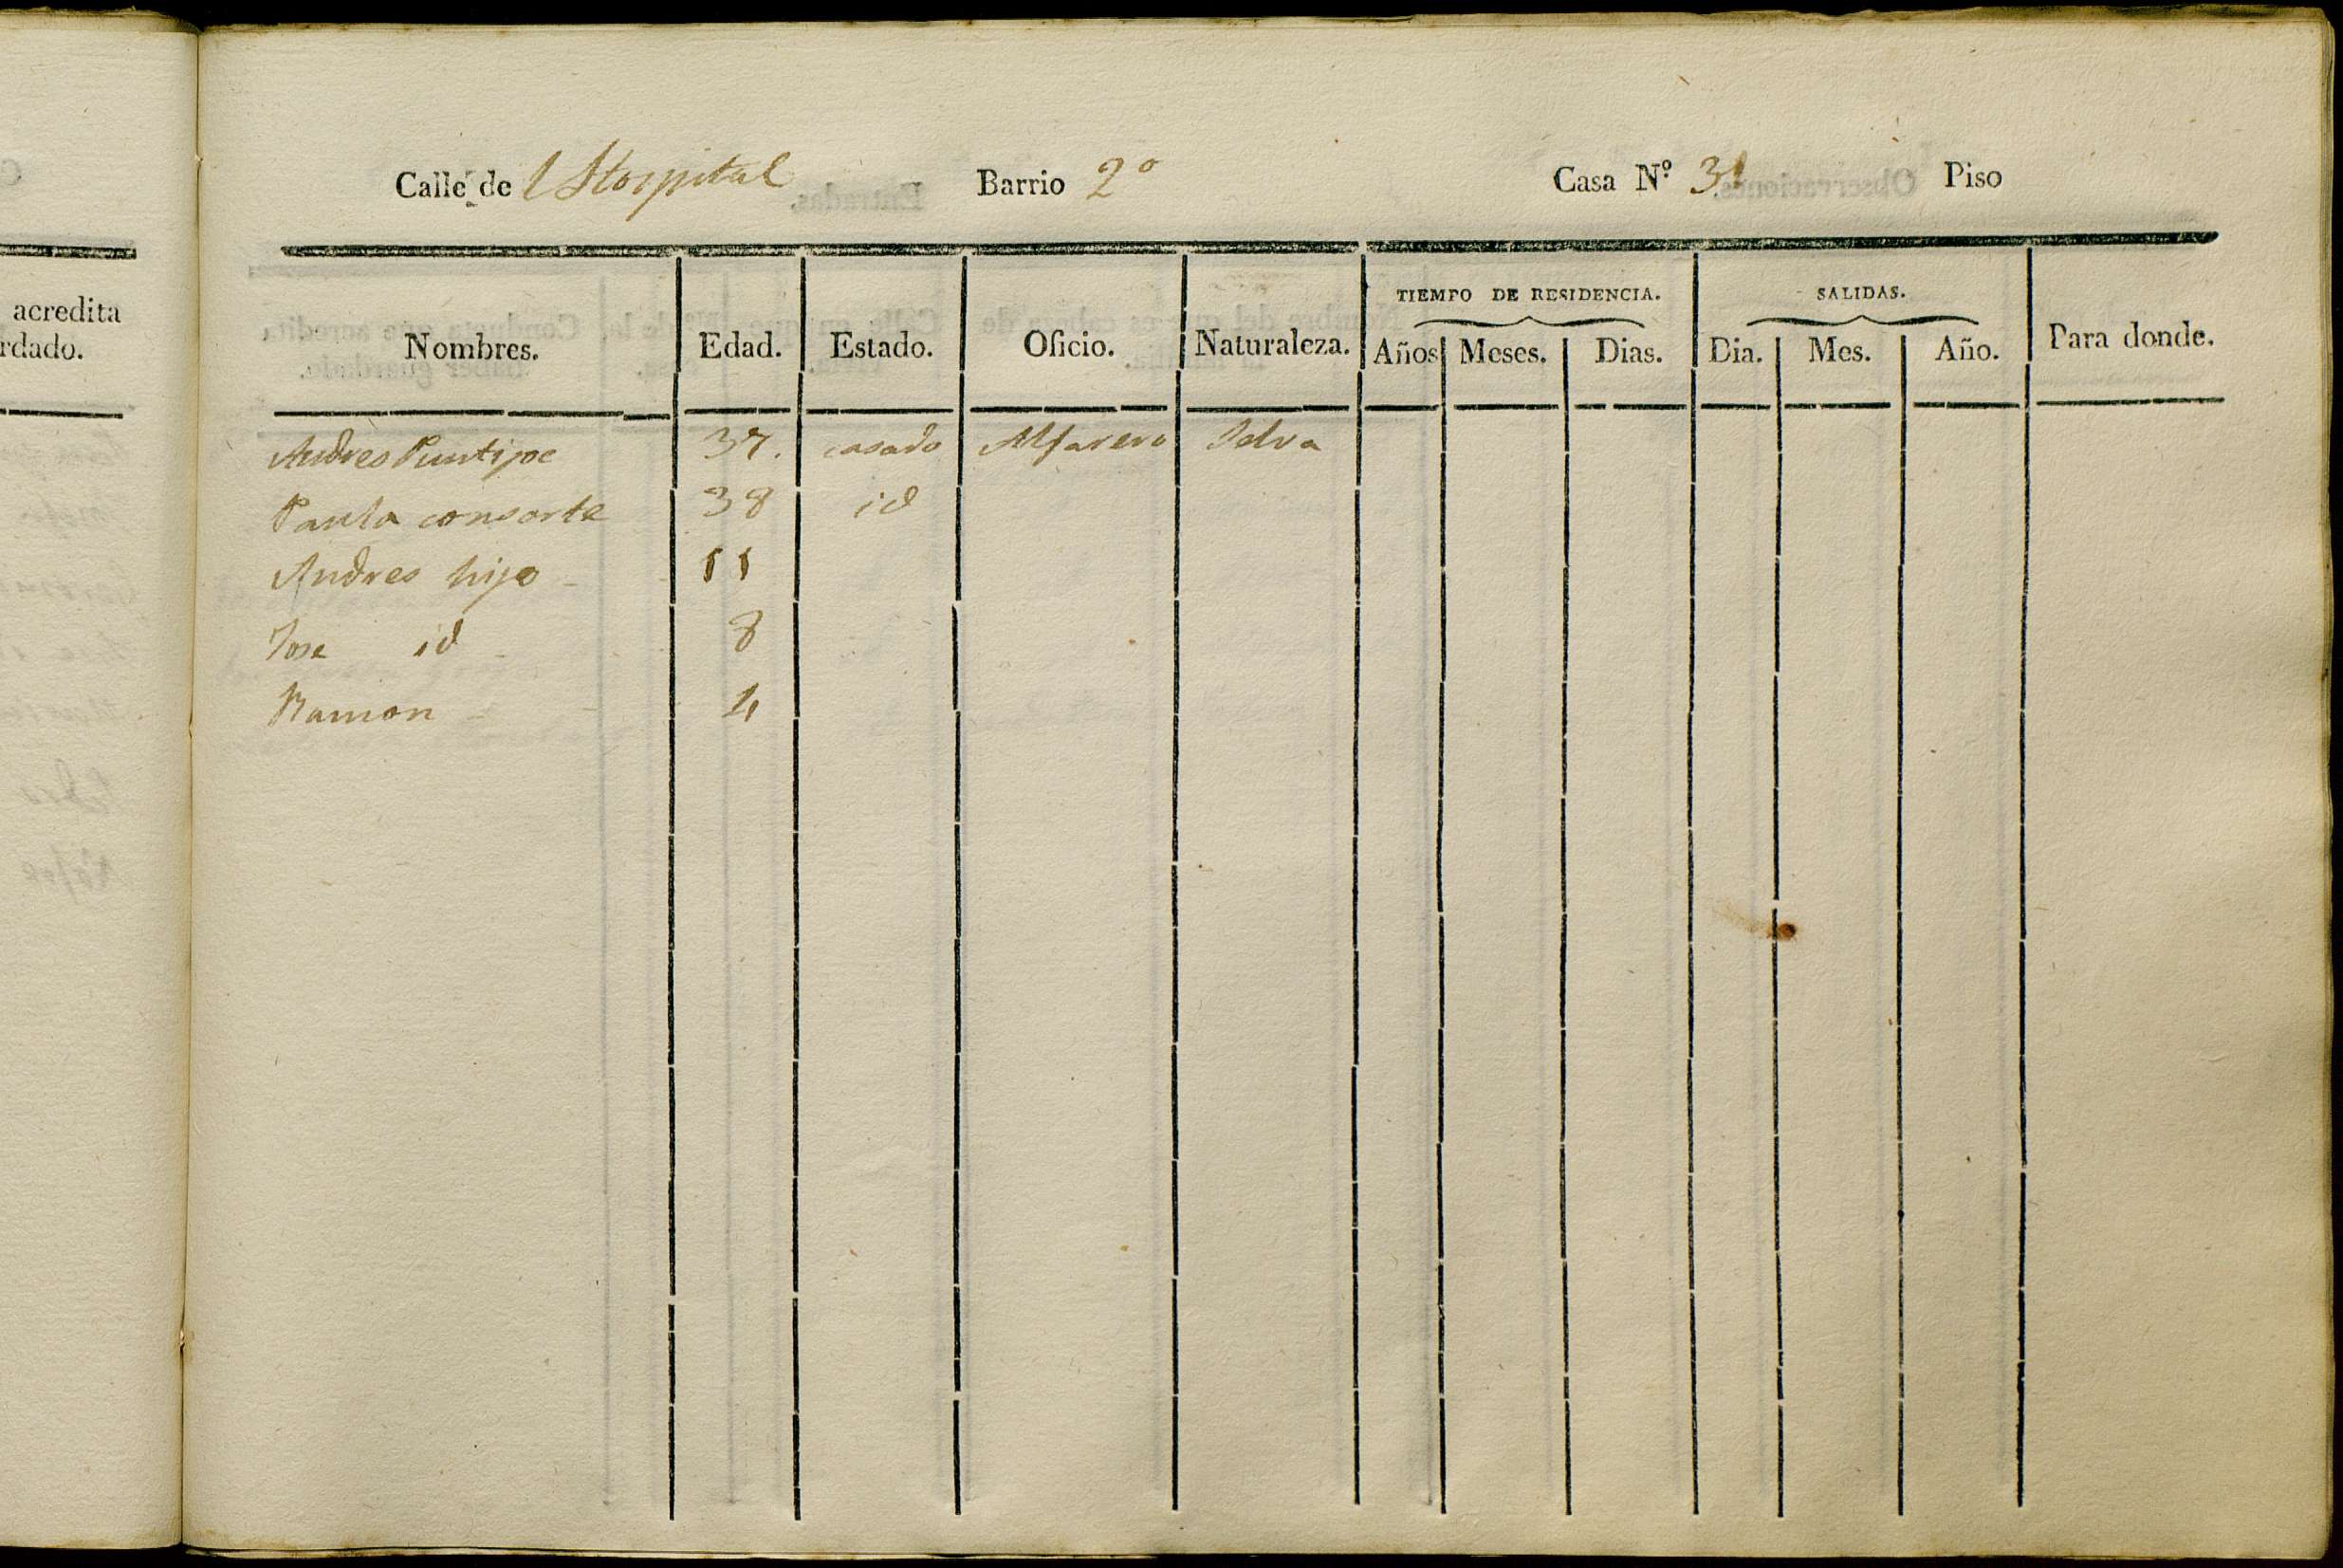 acredita
rdado.
Calle de l Hospital Barrio 2º Casa Nº 31 Piso
Nombres. Edad. Estado. Oficio. Naturaleza. TIEMPO DE RESIDENCIA. SALIDAS. Para donde.
Años Meses. Dias. Dia. Mes. Año.
Andres Puntipe 37. casado Alfarero Selva
Paula consorte 38 id
Andres hijo 11
Jose id 8
Ramon 4